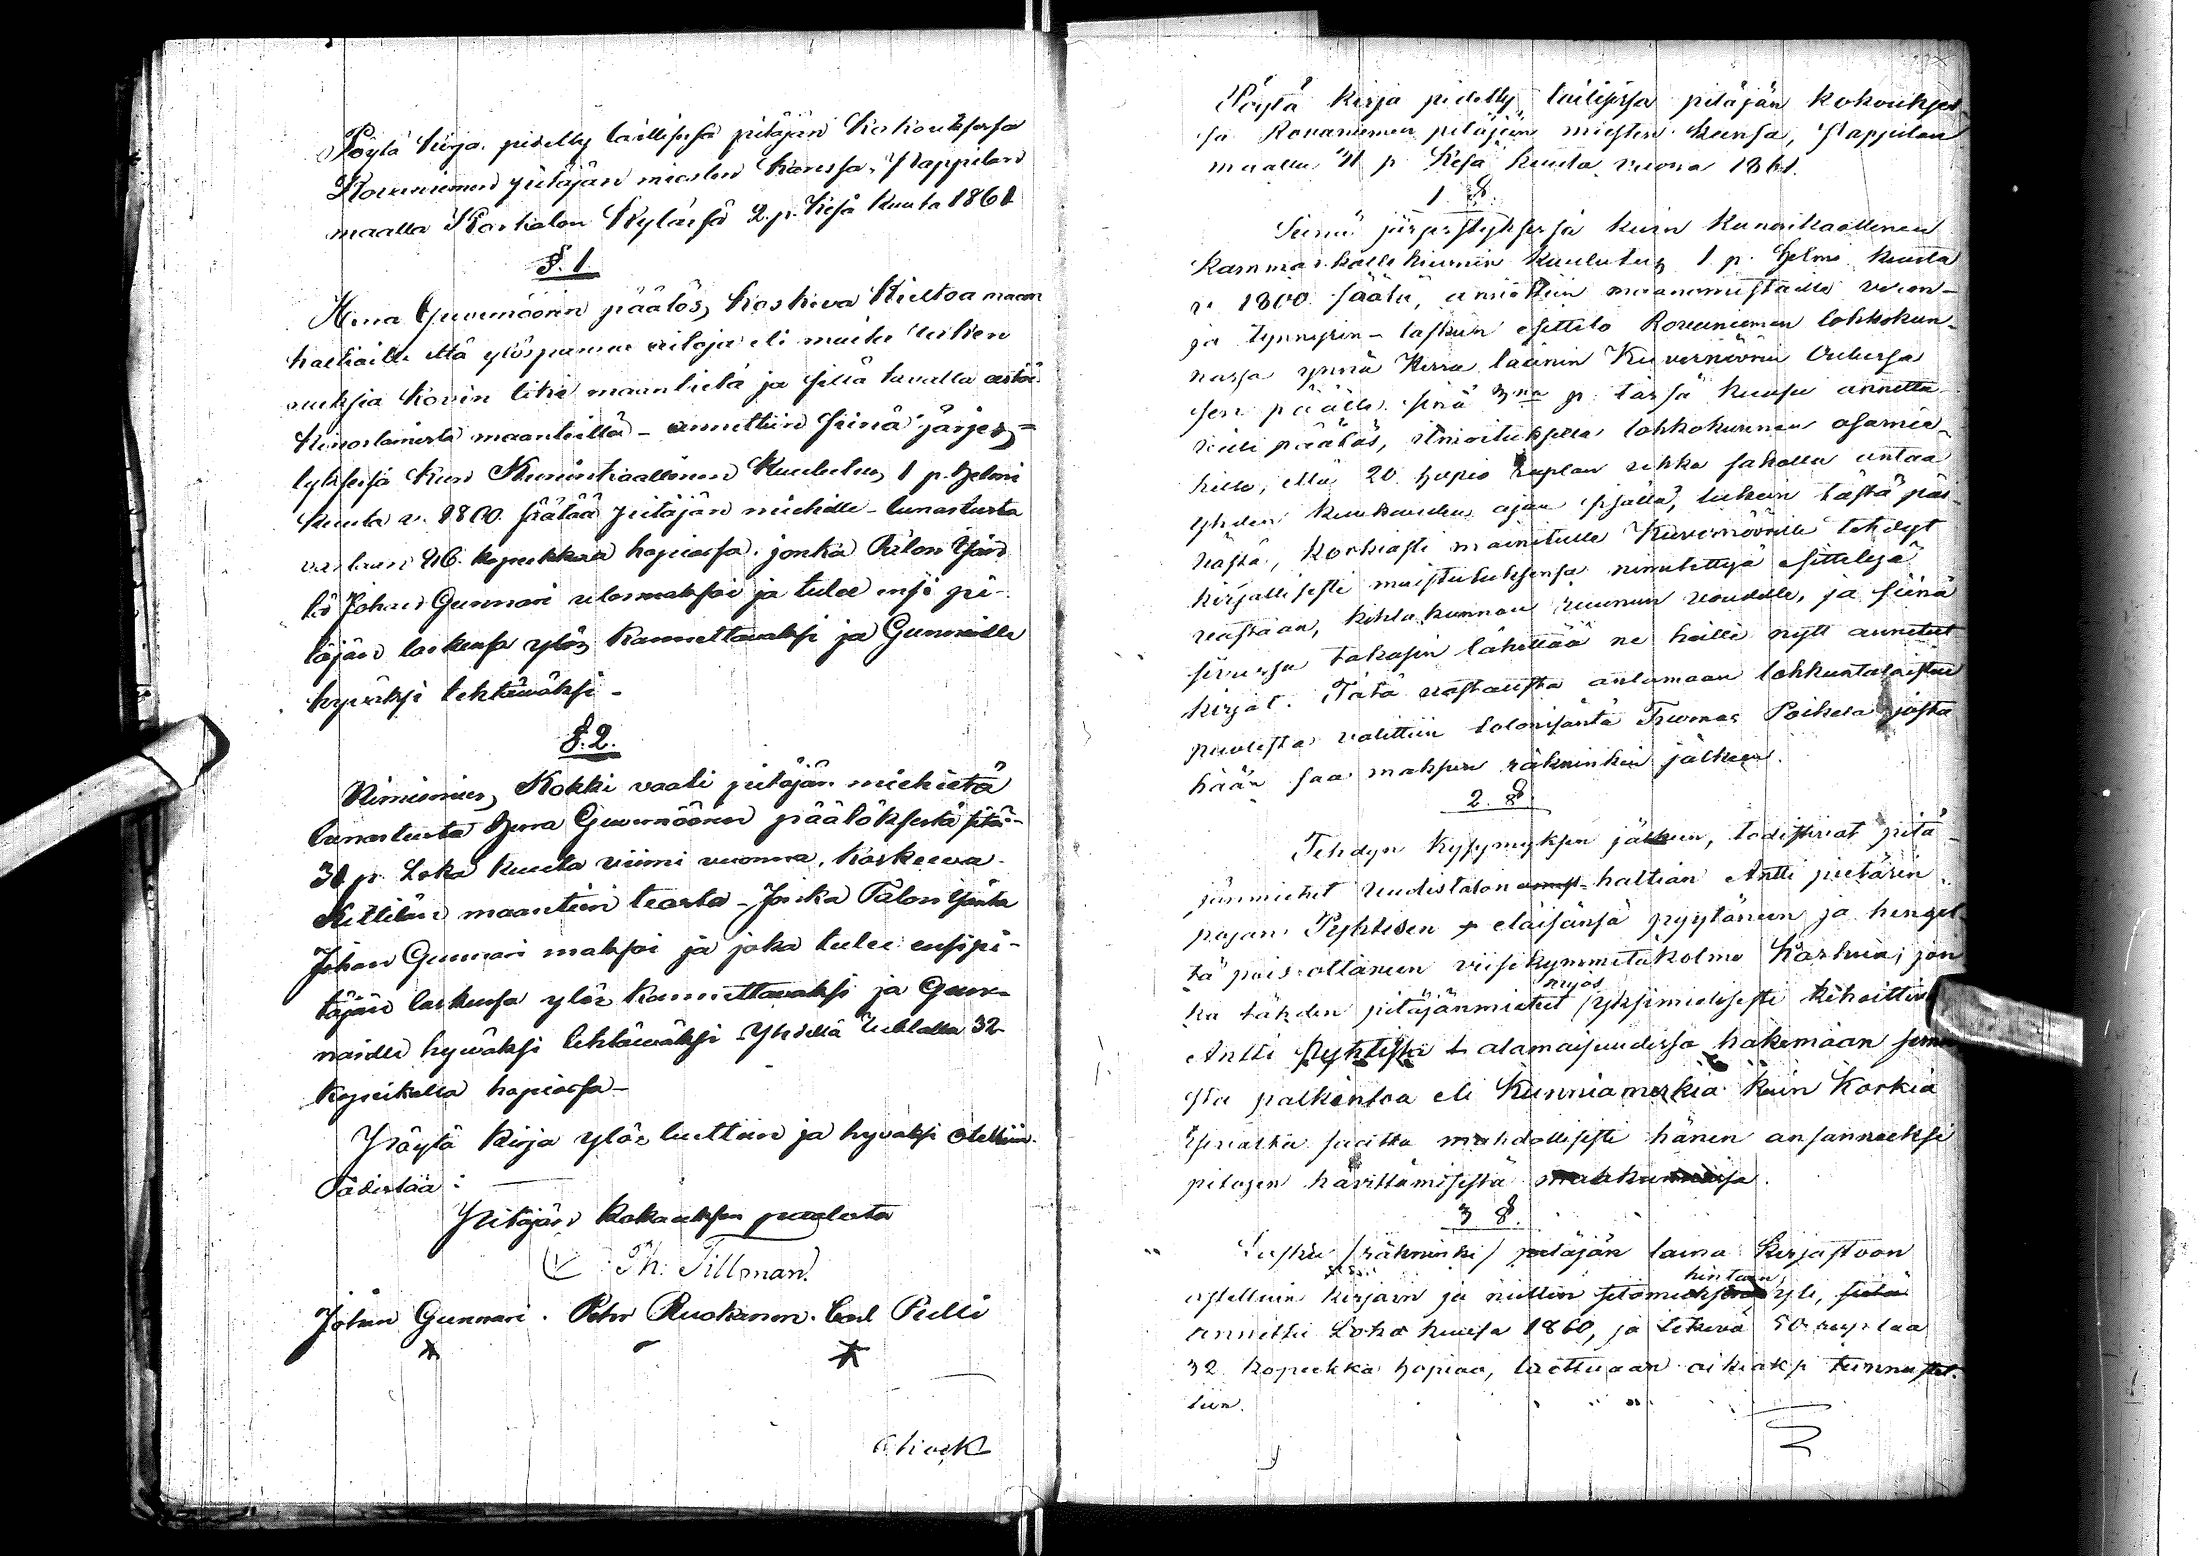 Pöytä kirja pidetty laillisessa pitäjän kokouksessa
Rovaniemen pitäjän miesten kanssa, Pappilan
maalla Korkalon kylässä 2 p. Kesä kuuta 1861
§. 1.
Herra Guvernöörin päätös, koskeva kieltoa maan
haltioille että ylöspanna aitoja eli muita
kovin liki maantietä ja sillä tavalla
kinostamista maanteillä - annettiin siinä järjes=
tyksesä kuin Keisarikaallinen Kuulutus 1 p. Helmi
kuuta v. 1800. säätää pitäjän miehille - lunastusta
vastaan 46. kopeekkaa hopiassa. jonka Talon Isän
tä Johan Gunnari ulosmaksoi ja tulee ensi pi-
täjän laskussa ylös kannettavaksi ja Gunnarille
hyväksi tehtäwäksi -
§. 2.
Nimismies Kokki vaati pitäjän miehiltä
lunastusta Herra Guvernöörin päätöksestä siitä
31 p. Loka kuuta viimi vuonna, koskewa
Kittilän maantien teosta - Jonka Talon Isäntä
Johan Gunnari maksoi ja joka tulee ensi pi-
täjän laskussa ylös kannettawaksi ja Gun-
narille hywäksi tehtäwäksi Yhdellä Rublalla 32
kopeikalla hopiassa -
Pöytä kirja ylös luettiin ja hyväksi otettiin.
Todistaa:
Pitäjän kokouksen puolesta
Th: Tillman.
Johan Gunnari. Petter Ruokanen. Carl Pulli
Pöytä kirja pidetty laillisessa pitäjän kokoukses-
sa Rovaniemen pitäjän miesten kanssa, Pappilan
maalla p. Kesä kuuta vuonna 1861.
1. §.
Siinä järjestyksessä kuin Kunnikaallinen
Kammarkollekiumin kuulutus 1 p. Helmi kuuta
v 1800. säätä, annettiin maanomistaille veron-
ja tynnyrin - laskun esittelo Rovaniemen lohkokun-
nassa ynnä Herra läänin Kuvernöörin Oulussa
sen päälle sinä 3na p. tässä kuussa annettu
väli päätös, ilmoituksella lohkokunnan asamie-
hille, että 20 hopio ruplan uhka sakolla antaa
yhden kuukauden ajan sisällä, lukein tästä päi-
västä, korkiasti mainitulle Kuvernöörille tehdyt
kirjallisesti muistutuksensa nimitettyjä esittelyjä
vastaan, kihlakunnan ruunun voudille, ja siinä
sivussa takasin lähettää ne heille nytt annetut
kirjat. Tätä vastausta antamaan lohkuntalaisten
puolesta valittiin talonisäntä Thomas Poikela josta
hään saa maksun räkningin jälkeen.
2. §.
Tehdyn kysymyksen jälkeen, todistivat pitä-
jänmiehet Uudistalon haltian Antti pietarin
pojan Pyhtisen eläisänsä pyytäneen ja hengel-
tä pois ottaneen viisikymmentäkolme karhua; jon
myös
ka tähden pitäjänmiehet yksimielisesti kehoittivat
Antti Pyhtistä alamaisuudessa hakemaan semmo
sta palkintoa eli kunniamerkiä kuin Korkia
Esivalta suitta mahdollisesti hänen ansanneeksi
petojen hävittämisestä
3 §.
Lasku (räkninki) pitäjän laina kirjastoon
hintain
ostettuin kirjain ja niitten yli,
annettu Loka kuusa 1860, ja tekevä 50 ruplaa
32 kopeekka hopiaa, luettuaan oikiaksi tunnustet-
tiin.